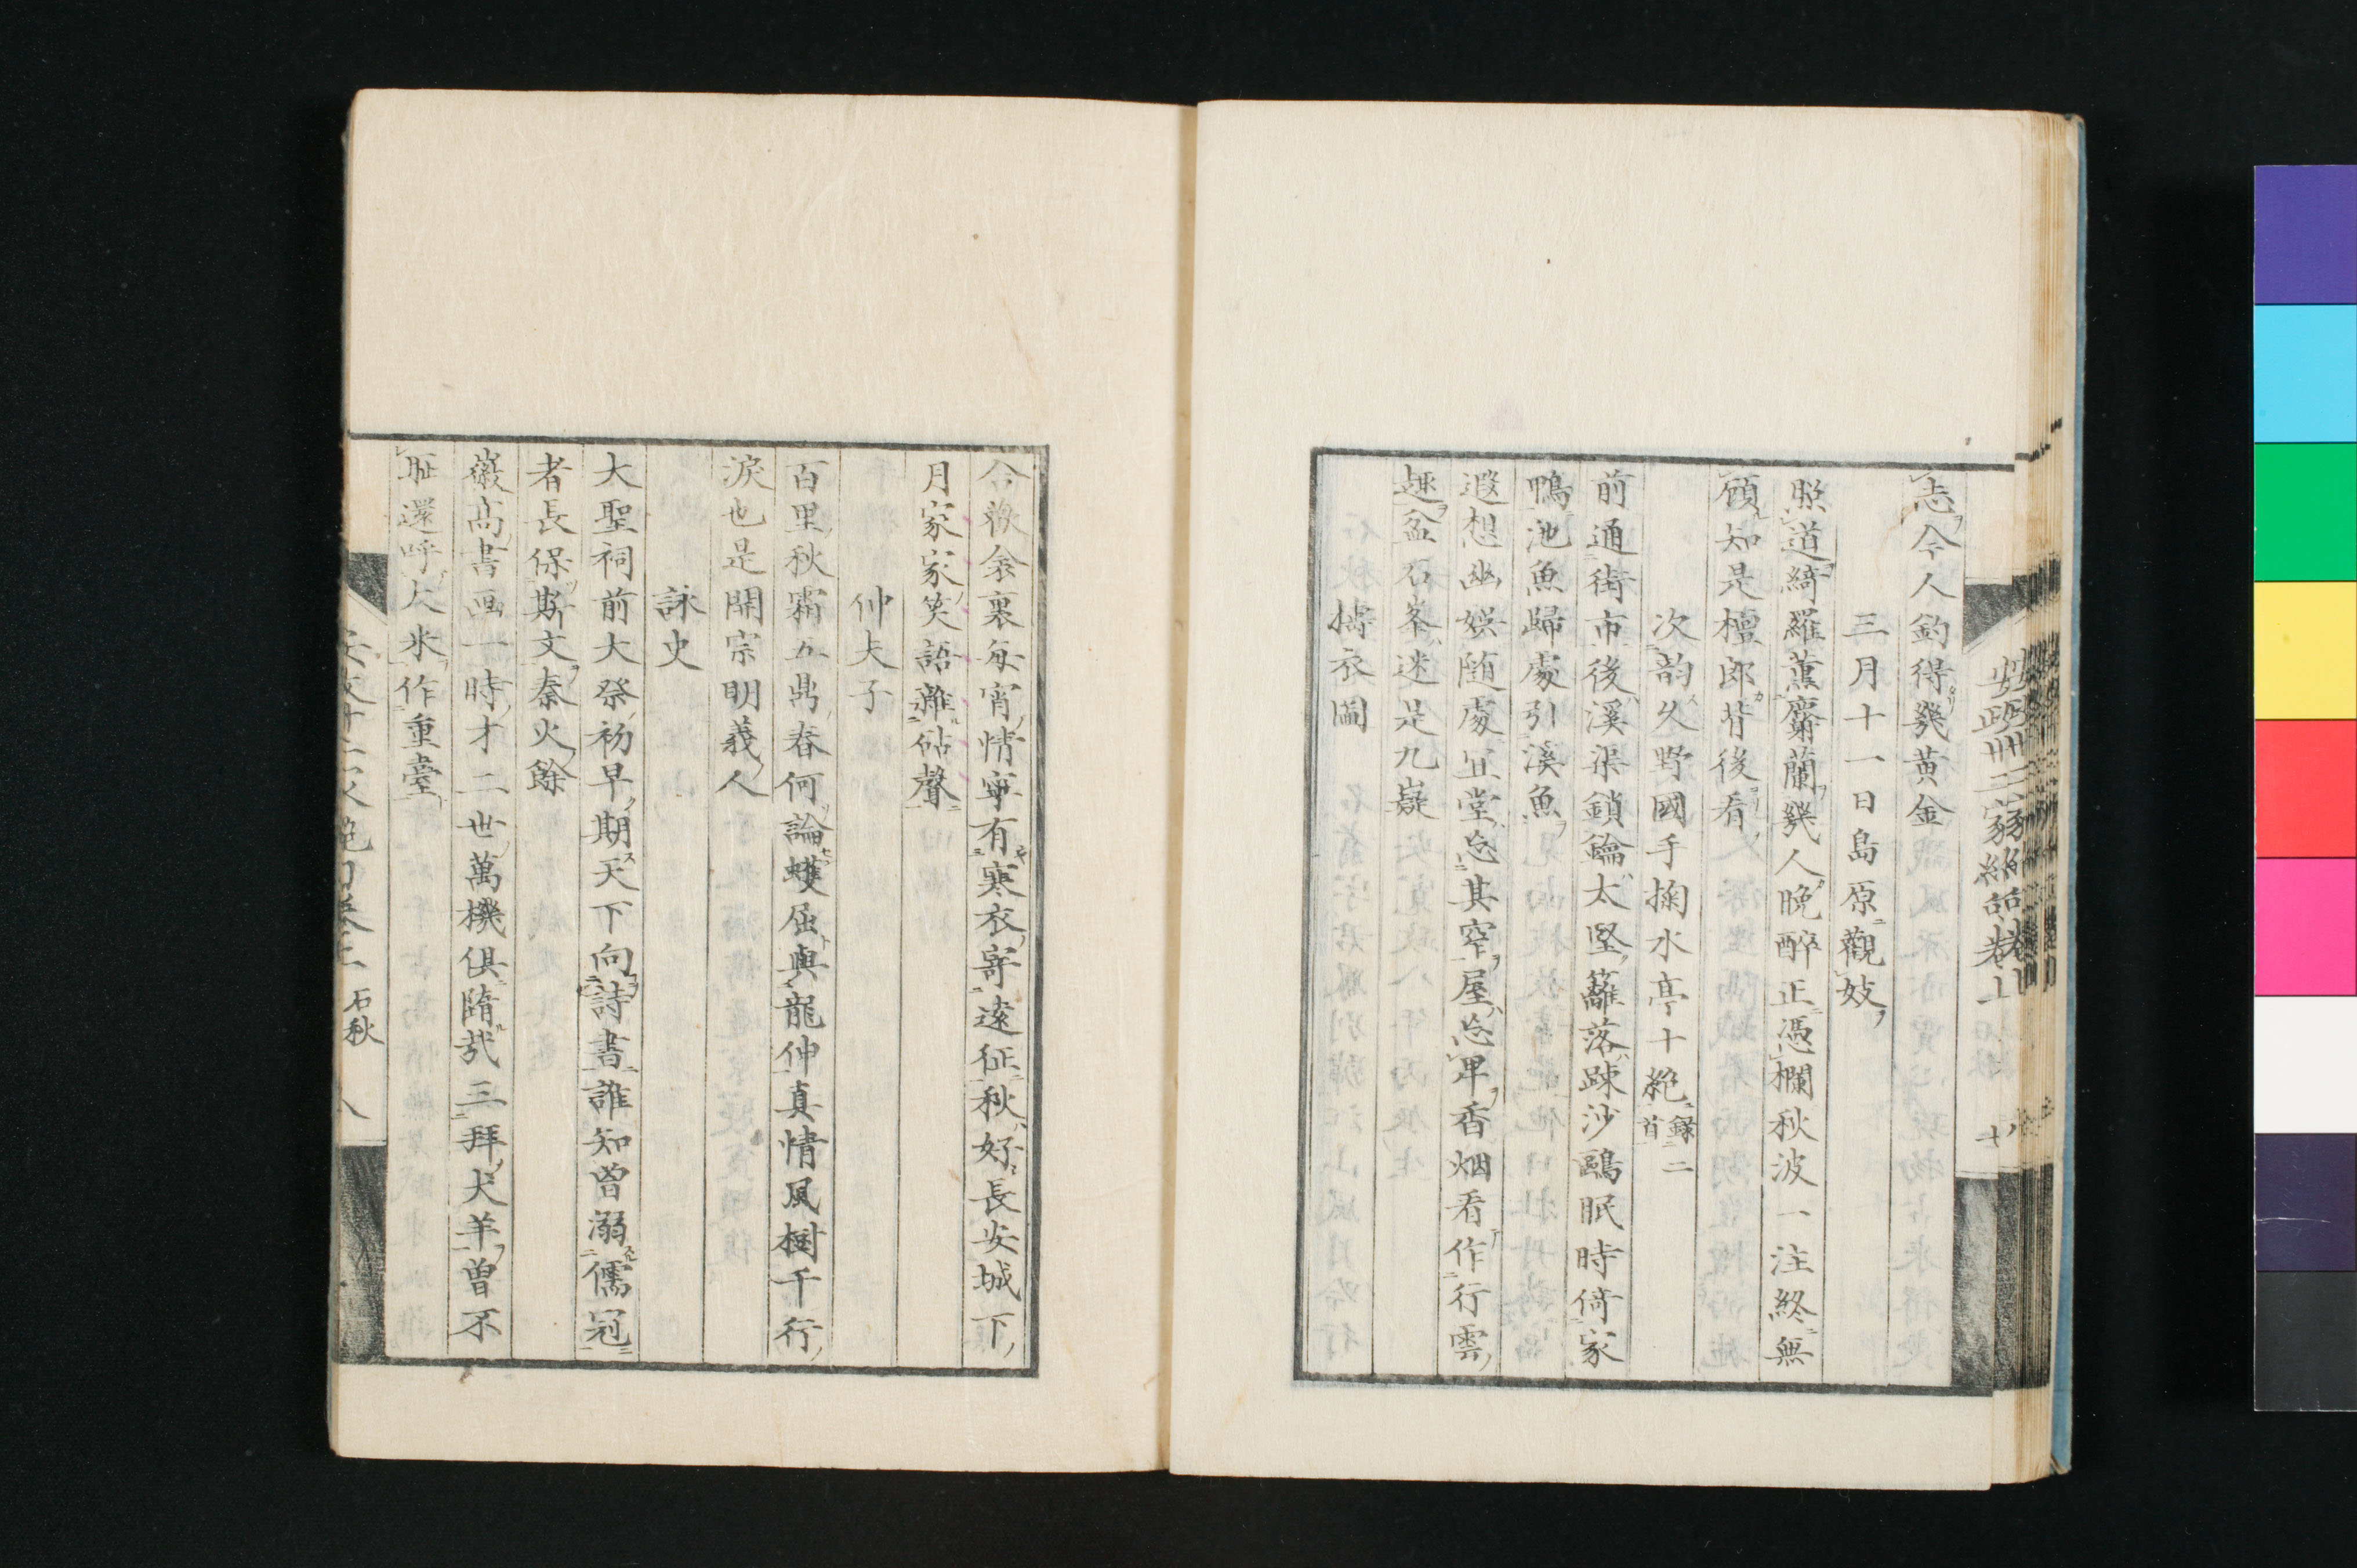 志今人釣得幾黄金
三月十一日島原觀妓
照道綺羅薫麝蘭幾人晩醉正憑欄秋波一注終無
顧知是檀郎背後看
次韵久野國手掬水亭十絶録二首
前通街市後溪渠鎖鑰太堅籬落踈沙鷗眠時倚家
鴨池魚歸處引溪魚
遐想幽娯随處宜堂忘其窄屋忘卑香烟看作行雲
趣盆石峯迷是九嶷
擣衣圖
合歡衾裏每宵情寧有寒衣寄遠征秋好長安城下
月家家笑語雜砧聲
仲夫子
百里秋霜五鼎春何論蠖屈與龍伸真情風樹千行
淚也是開宗明義人
詠史
大聖祠前大祭初早期天下向詩書誰知曽溺儒冠
者長保斯文秦火餘
徽高書画一時才二世萬機俱隋哉三拜犬羊曽不
耻還呼大米作重臺
石秋 八